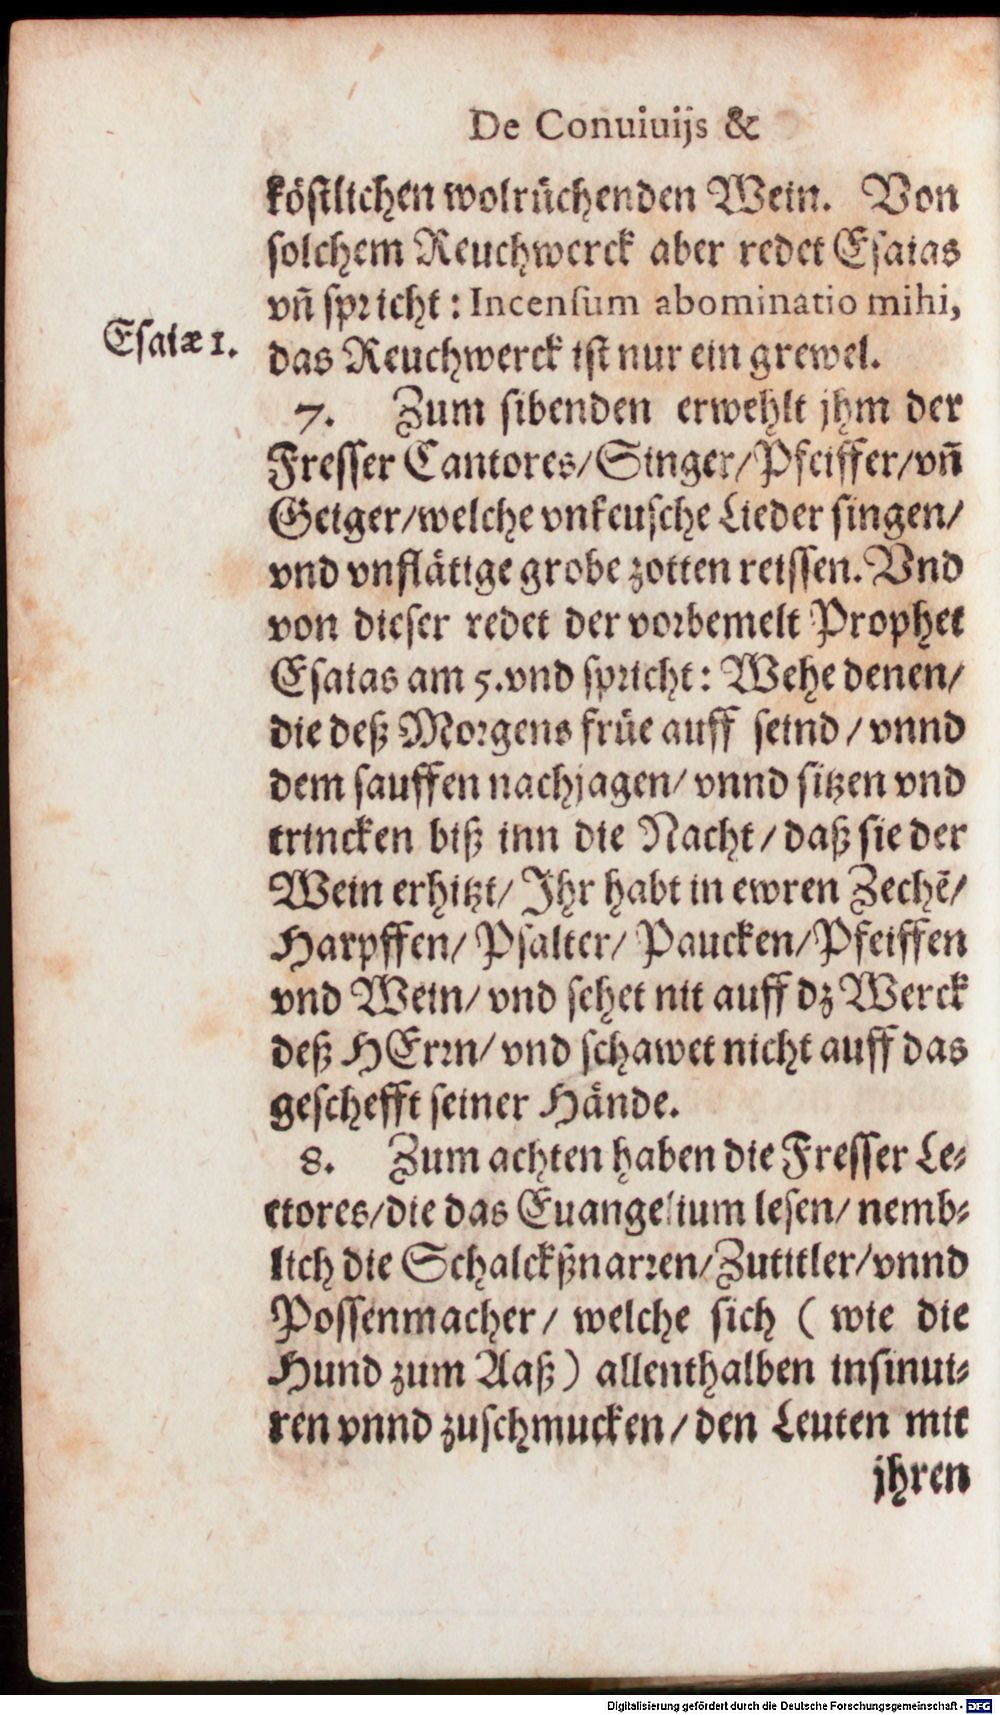 De Conuiuijs &
köstlichen wolrüchenden Wein. Von
solchem Reuchwerck aber redet Esaias
vñ spricht: Incensum abominatio mihi,
Esaiæ 1.
das Reuchwerck ist nur ein grewel.
7. Zum sibenden erwehlt jhm der
Fresser Cantores/Singer/Pfeiffer/vñ
Geiger/welche vnkeusche Lieder singen/
vnd vnflätige grobe zotten reissen. Vnd
von dieser redet der vorbemelt Prophet
Esaias am 5. vnd spricht: Wehe denen/
die deß Morgens früe auff seind / vnnd
dem sauffen nachjagen/ vnnd sitzen vnd
trincken biß inn die Nacht/ daß sie der
Wein erhitzt/ Ihr habt in ewren Zechē/
Harpffen/ Psalter/ Paucken/Pfeiffen
vnd Wein/ vnd sehet nit auff dz Werck
deß HErrn/ vnd schawet nicht auff das
geschefft seiner Hände.
8. Zum achten haben die Fresser Le-
ctores/die das Euangelium lesen/ nemb-
lich die Schalckßnarren/Zutitler/vnnd
Possenmacher/ welche sich ( wie die
Hund zum Aaß) allenthalben insinui-
ren vnnd zuschmucken/den Leuten mit
jhren
Digitalisierung gefördert durch die Deutsche Forschungsgemeinschaft - DFG